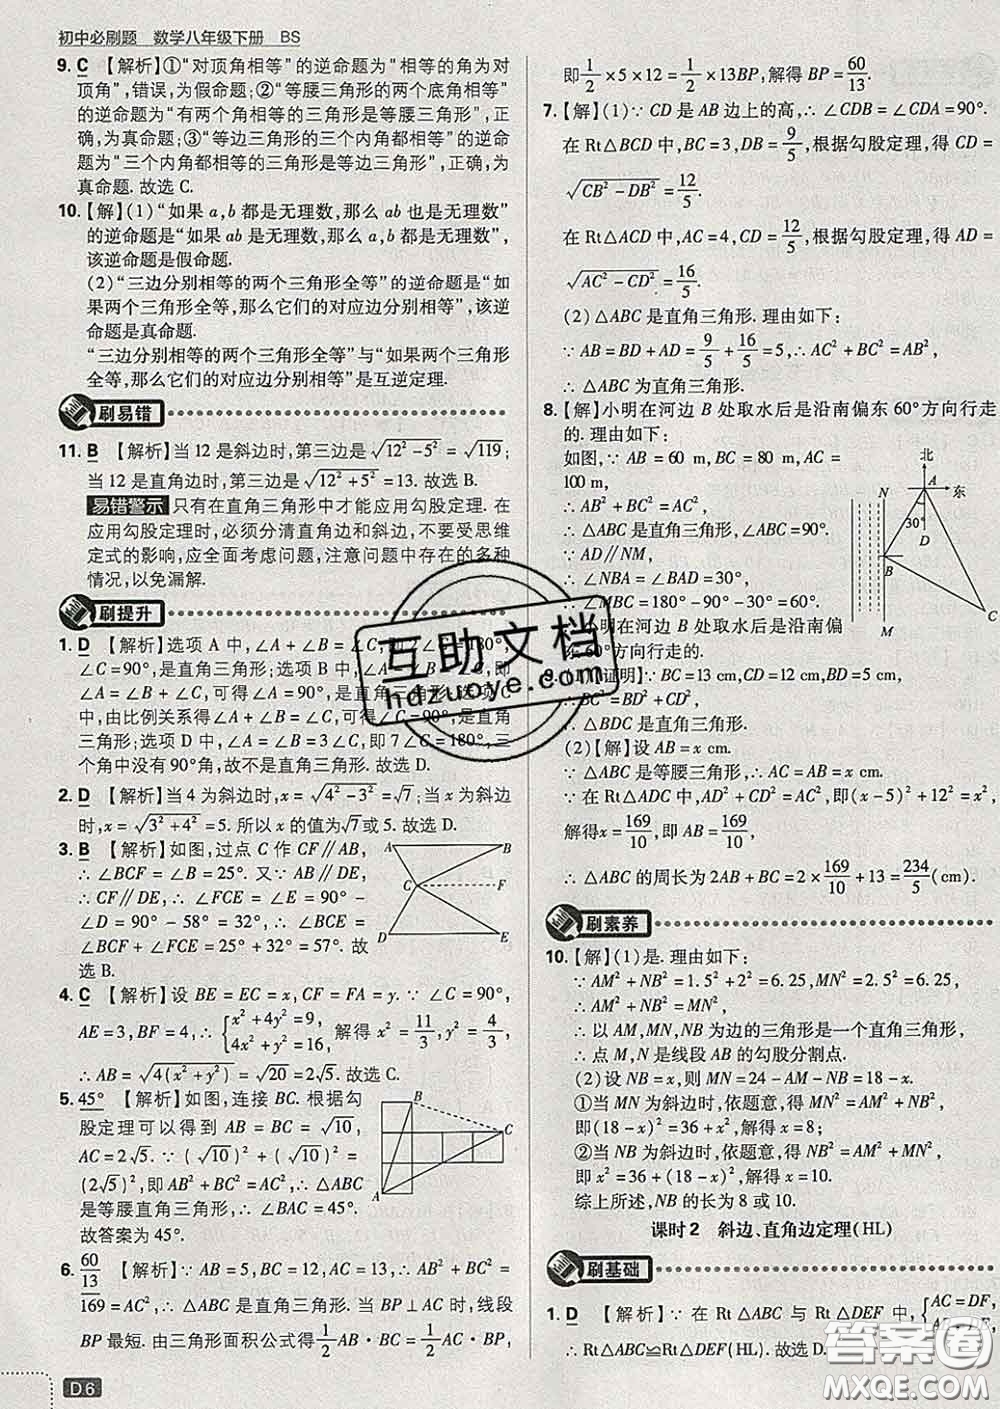 初中必刷题 数学八年级下册 BS
9. C 【解析】①“对顶角相等”的逆命题为“相等的角为对
顶角”,错误,为假命题;②“等腰三角形的两个底角相等”
的逆命题为“有两个角相等的三角形是等腰三角形”,正
确,为真命题;③“等边三角形的三个内角都相等”的逆命
题为“三个内角都相等的三角形是等边三角形”,正确,为
真命题.故选C.
10.【解】(1)“如果a,b都是无理数,那么ab也是无理数”
的逆命题是“如果ab是无理数,那么a,b都是无理数”,
该逆命题是假命题.
(2)“三边分别相等的两个三角形全等”的逆命题是“如
果两个三角形全等,那么它们的对应边分别相等”,该逆
命题是真命题.
“三边分别相等的两个三角形全等”与“如果两个三角形
全等,那么它们的对应边分别相等”是互逆定理.
刷易错
11. B 【解析】当12是斜边时,第三边是√(12²-5²)=√119;
当12是直角边时,第三边是√(12²+5²)=13.故选B.
易错警示 只有在直角三角形中才能应用勾股定理.在
应用勾股定理时,必须分清直角边和斜边,不要受思维
定式的影响,应全面考虑问题,注意问题中存在的多种
情况,以免漏解.
刷提升
1. D 【解析】选项A中,∠A+∠B=∠C,即2∠C=180°,
∠C=90°,是直角三角形;选项B中,
=∠B+∠C,可得∠A=90°,是直角三角形;选项C
中,由比例关系得∠A+∠B=∠C=90°,是直角
三角形;选项D中,∠A=∠B=3∠C,即7∠C=180°,三
个内角没有90°角,故不是直角三角形.故选D.
2. D 【解析】当4为斜边时,x=√(4²-3²)=√7;当x为斜边
时,x=√(3²+4²)=5.所以x的值为√7或5.故选D.
3. B 【解析】如图,过点C作CF∥AB,
∴∠BCF=∠B=25°.又∵AB∥DE,
∴CF∥DE,∴∠FCE=∠E=90°-
∠D=90°-58°=32°,∴∠BCE=
∠BCF+∠FCE=25°+32°=57°.故
选B.
A B C F D E
4. C 【解析】设BE=EC=x,CF=FA=y.∵∠C=90°,
AE=3,BF=4,∴{x²+4y²=9, 4x²+y²=16, 解得x²=11/3,y²=4/3,
∴AB=√(4(x²+y²))=√20=2√5.故选C.
5. 45° 【解析】如图,连接BC.根据勾
股定理可以得到AB=BC=√10,
AC=2√5.∵(√10)²+(√10)²=
(2√5)²,即AB²+BC²=AC²,∴△ABC
是等腰直角三角形,∴∠BAC=45°.
故答案为45°.
B C A
6. 60/13 【解析】∵AB=5,BC=12,AC=13,∴AB²+BC²=
169=AC²,∴△ABC是直角三角形.当BP⊥AC时,线段
BP最短.由三角形面积公式得1/2AB·BC=1/2AC·BP,
D6
即1/2×5×12=1/2×13BP,解得BP=60/13.
7.【解】(1)∵CD是AB边上的高,∴∠CDB=∠CDA=90°.
在Rt△BCD中,BC=3,DB=9/5,根据勾股定理,得CD=
√(CB²-DB²)=12/5.
在Rt△ACD中,AC=4,CD=12/5,根据勾股定理,得AD=
√(AC²-CD²)=16/5.
(2)△ABC是直角三角形.理由如下:
∵AB=BD+AD=9/5+16/5=5,∴AC²+BC²=AB²,
∴△ABC为直角三角形.
8.【解】小明在河边B处取水后是沿南偏东60°方向行走
的.理由如下:
如图,∵AB=60 m,BC=80 m,AC=
100 m,
∴AB²+BC²=AC²,
∴△ABC是直角三角形,∠ABC=90°.
∵AD∥NM,
∴∠NBA=∠BAD=30°,
∴∠MBC=180°-90°-30°=60°,
∴小明在河边B处取水后是沿南偏
东60°方向行走的.
北 东 A N 30° D B C M
9. 证明】∵BC=13 cm,CD=12 cm,BD=5 cm,
∴BC²=BD²+CD²,
∴△BDC是直角三角形.
(2)【解】设AB=x cm.
∵△ABC是等腰三角形,∴AB=AC=x cm.
∵在Rt△ADC中,AD²+CD²=AC²,即(x-5)²+12²=x²,
解得x=169/10,即AB=169/10,
∴△ABC的周长为2AB+BC=2×169/10+13=234/5(cm).
刷素养
10.【解】(1)是.理由如下:
∵AM²+NB²=1.5²+2²=6.25,MN²=2.5²=6.25,
∴AM²+NB²=MN²,
∴以AM,MN,NB为边的三角形是一个直角三角形,
∴点M,N是线段AB的勾股分割点.
(2)设NB=x,则MN=24-AM-NB=18-x.
①当MN为斜边时,依题意,得MN²=AM²+NB²,
即(18-x)²=36+x²,解得x=8;
②当NB为斜边时,依题意,得NB²=AM²+MN²,
即x²=36+(18-x)²,解得x=10.
综上所述,NB的长为8或10.
课时2 斜边、直角边定理(HL)
刷基础
1. D 【解析】∵在Rt△ABC与Rt△DEF中,{AC=DF,
∴Rt△ABC≌Rt△DEF(HL).故选D.
互助文档
hdzuoye.com
答案圈
MXQE.COM